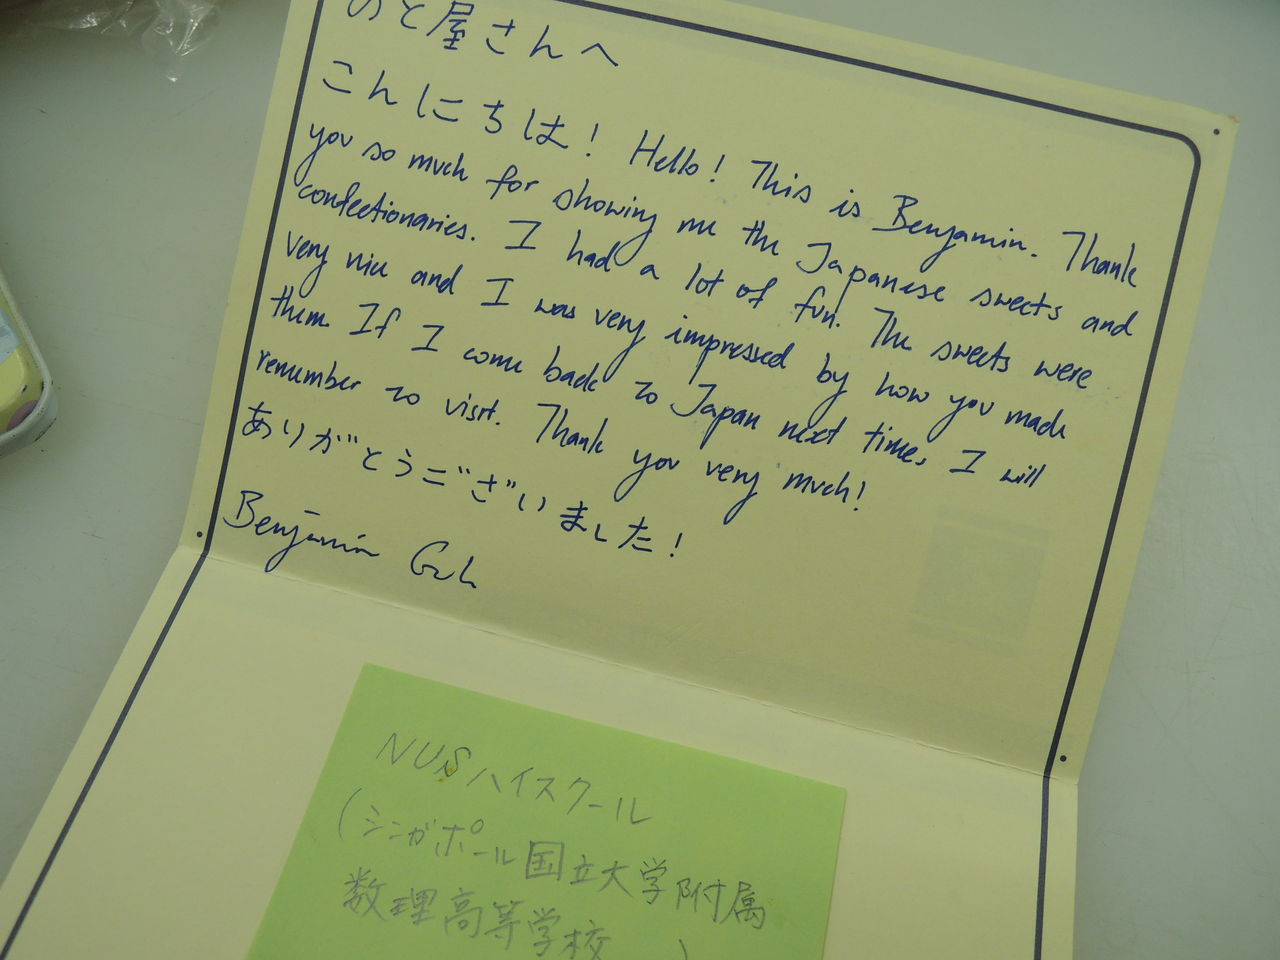 のと屋さんへ
こんにちは! Hello! This is Benjamin. Thank
you so much for showing me the Japanese sweets and
confectionaries. I had a lot of fun. The sweets were
very nice and I was very impressed by how you made
them. If I come back to Japan next time, I will
remember to visit. Thank you very much!
ありがとうございました!
Benjamin Goh
NUSハイスクール
(シンガポール国立大学附属
数理高等学校 )